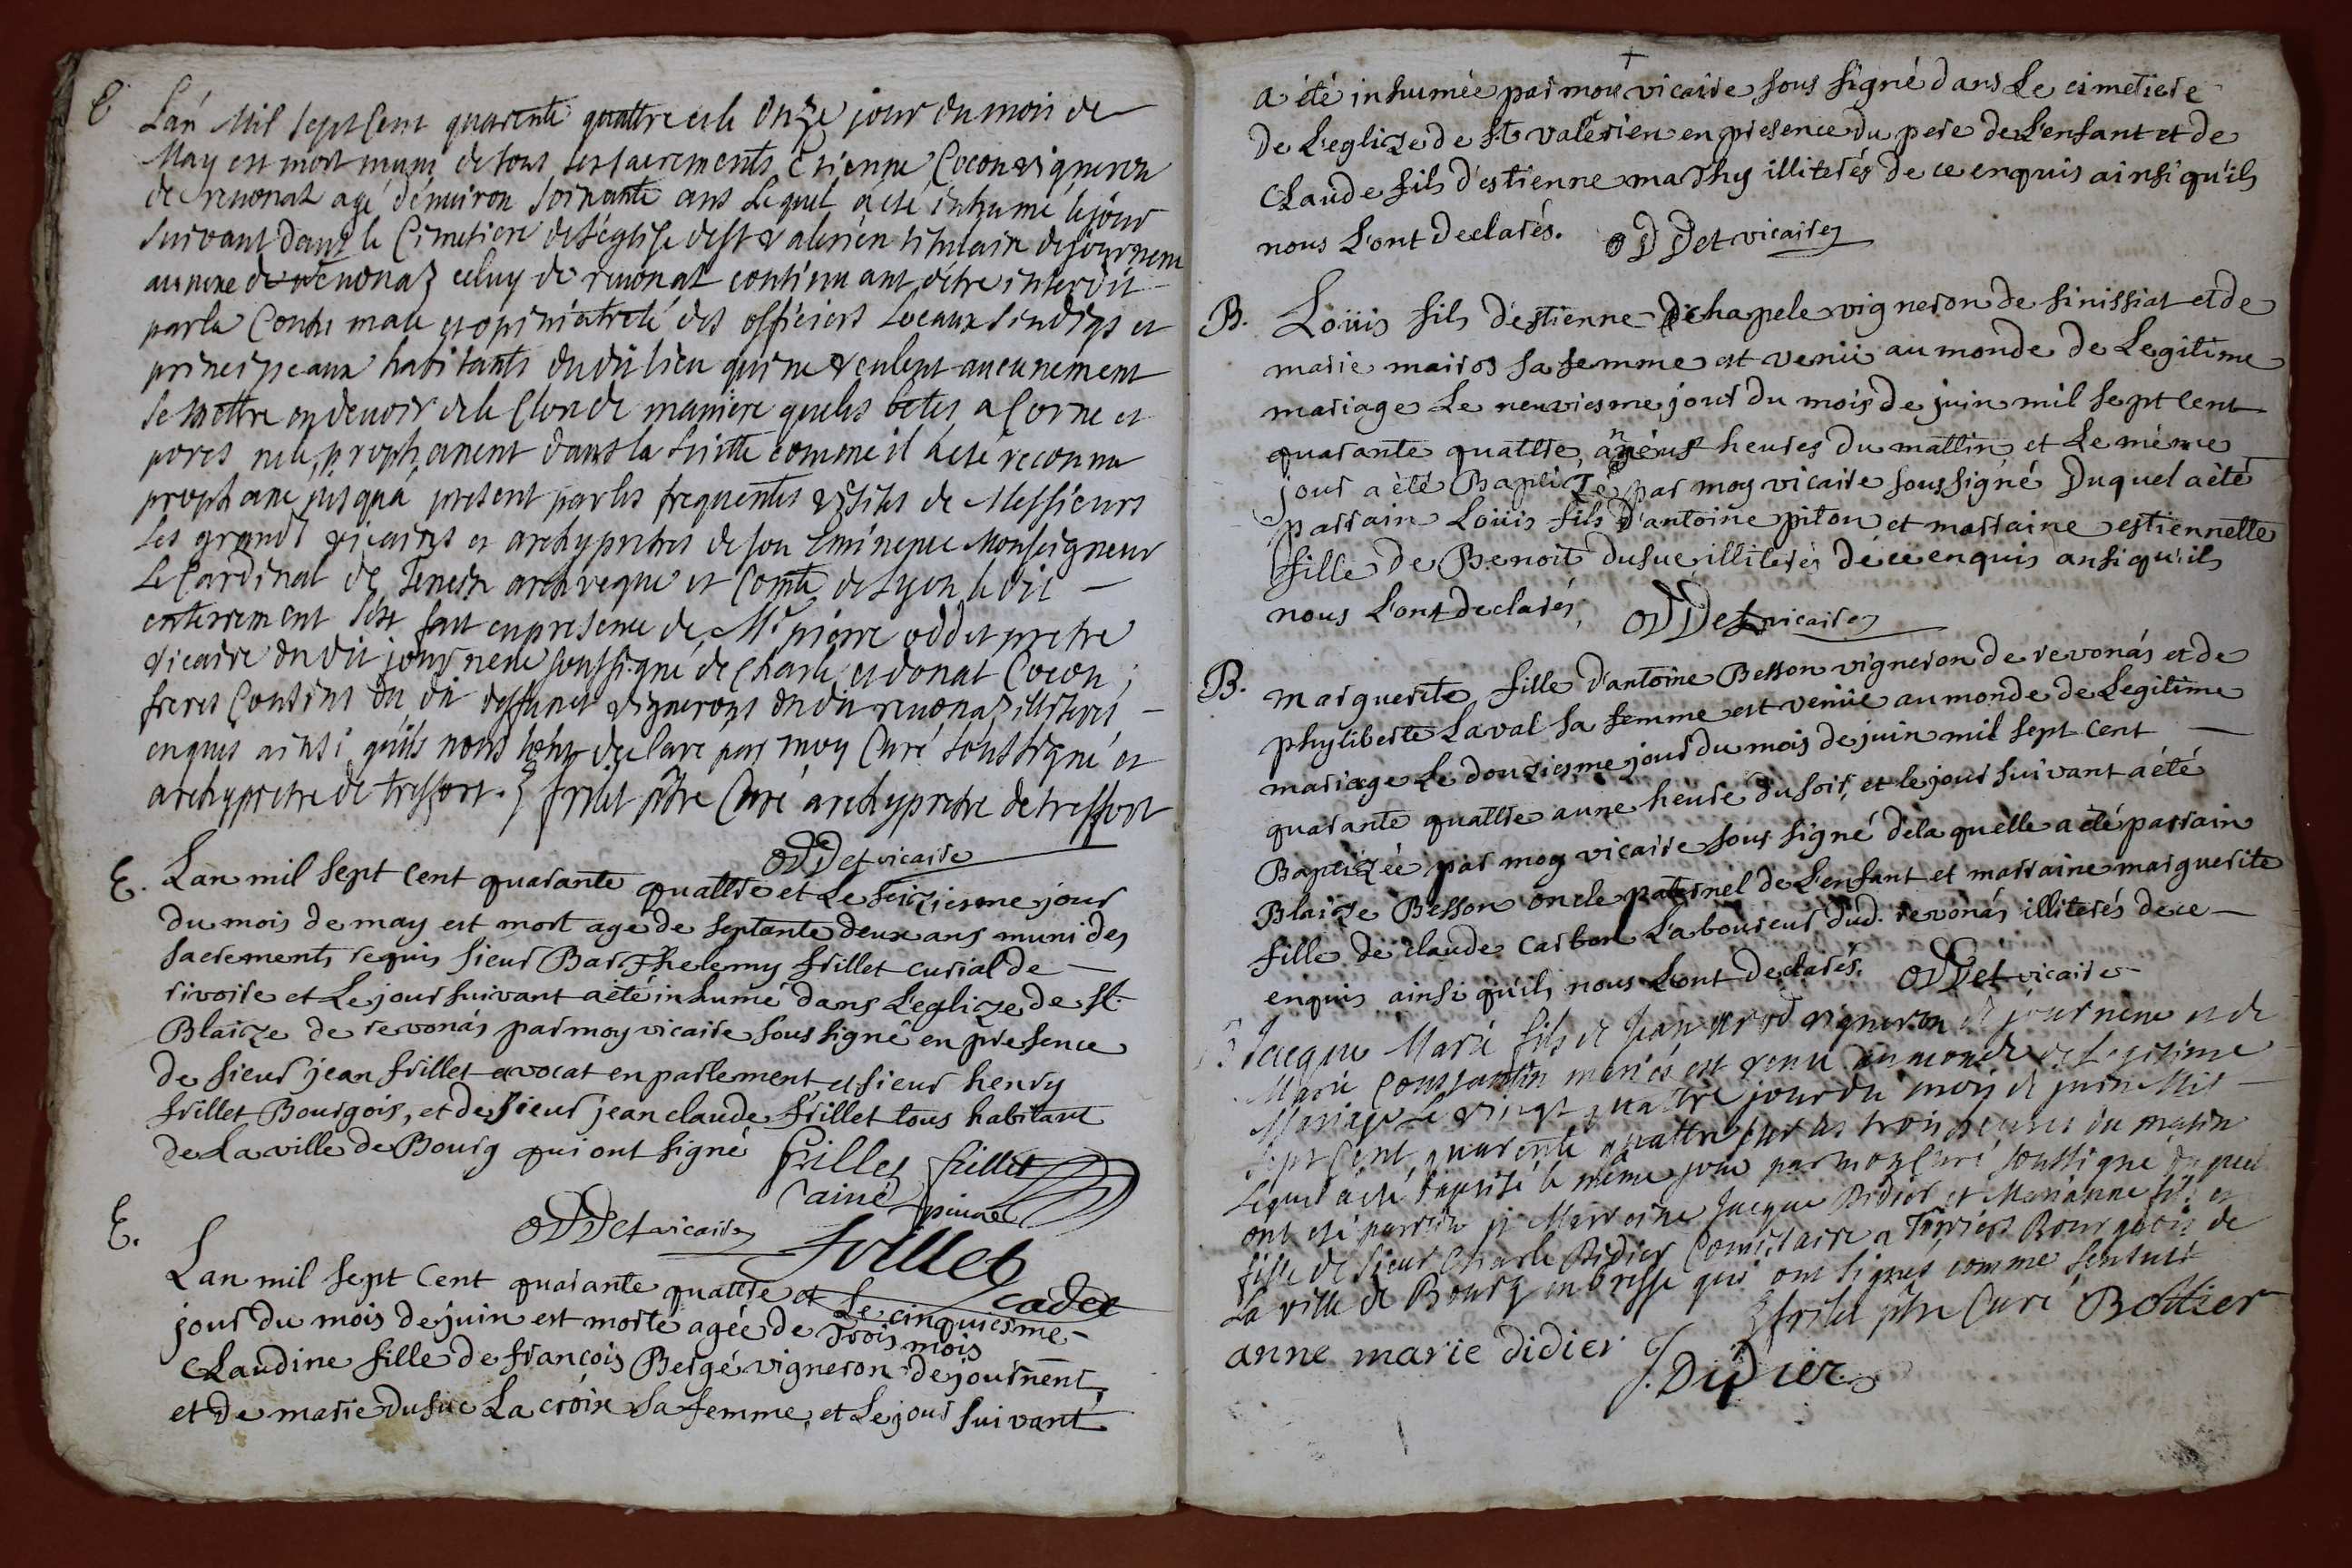 E Lán Mil sept Cent quarente quattre et le Onze jour du mois de
May est mort muni de tous les sacrements Etienne Cocon vigneron
de revonaz agé d'environ soixante ans Lequel a été inhumé le jour
suivant dans le Cimetiere de l'église de st valerien titulaire de journem
annexe de revonaz celuy de revonaz continuant détre interdit
par la Contumace et opiniatreté des officiers Locaux sindiqs et
principeaux habitants du dit lieu qui ne veulent aucunement
se mettre en devoir de le Clore de maniere que les betes a Corne et
porcs ne le prophanent dans la suitte comme il a eté reconnu
prophane jusqu'á present par les frequentes visites de Messieurs
Les grands vicaires et archypretres de son Eminence Monseigneur
Le Cardinal de Tencin archveque et Comte de Lyon le dit
enterrement s'est fait en presence de Mr pierre oddet pretre
vicaire du dit journem soussigné de Charle et donat Cocon
freres Cousins du dit deffunct vignerons du dit revonaz illiterés
enquis ainsi qu'ils nous l'ont declaré par moy Curé soussigné et
archypretre de treffort. frilet ptre Curé archypretre de treffort
oddet vicaire
E. Lan mil sept cent quarante quattre et Le seiziesme jour
du mois de may est mort age de septante deux ans muni des
sacrements requis sieur Barthelemy frillet curial de
rivoire et Le jour suivant a été inhumé dans L'eglize de st
Blaize de revonás par moy vicaire sous signé en presence
de sieur jean frillet avocat en parlement et sieur henry
frillet Bourgois, et de sieur jean claude frillet tous habitant
de La ville de Bourg qui ont signé
frillet frillet
ainé
oddet vicaire
frillet
cadet
E. Lan mil sept Cent quarante quattre et Le cinquiesme
jour du mois de juin est morte agée de Trois mois
Claudine fille de françois Bergé vigneron de journent,
et de marie dusuc La croix sa femme, et Le jour suivant
a été inhumée par moy vicaire sous signé dans Le cimetiere
de L'eglize de st valerien en presence du pere de L'enfant et de
Claude fils d'estienne mathy illiterés de ce enquis ainsi qu'ils
nous L'ont declarés. oddet vicaire
B. Loüis fils d'estienne dechapele vigneron de sinissiat et de
marie mairos sa femme est venü au monde de Legitime
mariage Le neuviesme jour du mois de juin mil sept Cent
quarante quattre, a neuf heures du mattin et Le même
jour a été Baptizé par moy vicaire sous signé Duquel a été
parrain Loüis fils d'antoine piton et marraine estiennette
fille de Benoit dusuc illiterés de ce enquis ansi qu'ils
nous L'ont declarés, oddet vicaire
B. marguerite fille d'antoine Besson vigneron de revonás et de
phyliberte Laval sa femme est venüe au monde de Legitime
mariage Le douziesme jour du mois de juin mil sept cent
quarante quattre a une heure du soir, et le jour suivant a été
Baptizée par moy vicaire sous signé de la quelle a été parrain
Blaize Besson oncle paternel de L'enfant et marraine marguerite
fille de claude carbon Laboureur dud. revonás illiterés de ce
enquis ainsi qu'ils nous L'ont declarés. oddet vicaire
B. Jacque Marie fils de Jean vigneron de journem et de
Marie Constantin mariés est venu au monde de Legitime
Mariage le vingt quattre jour du mois de juin Mil
sept Cent quarente quattre sur les trois heures du matin
Lequel a eté baptisé le même jour par moy Curé soussigné duquel
ont eté parrein et Marreine Jacque Didier et Marianne fils et
fille de sieur Charle Didier Comissaire a Terriers Bourgeois de
La ville de Bourg en bresse qui ont signés comme
frilet ptre Curé Bottier
anne marie didier J. Didier